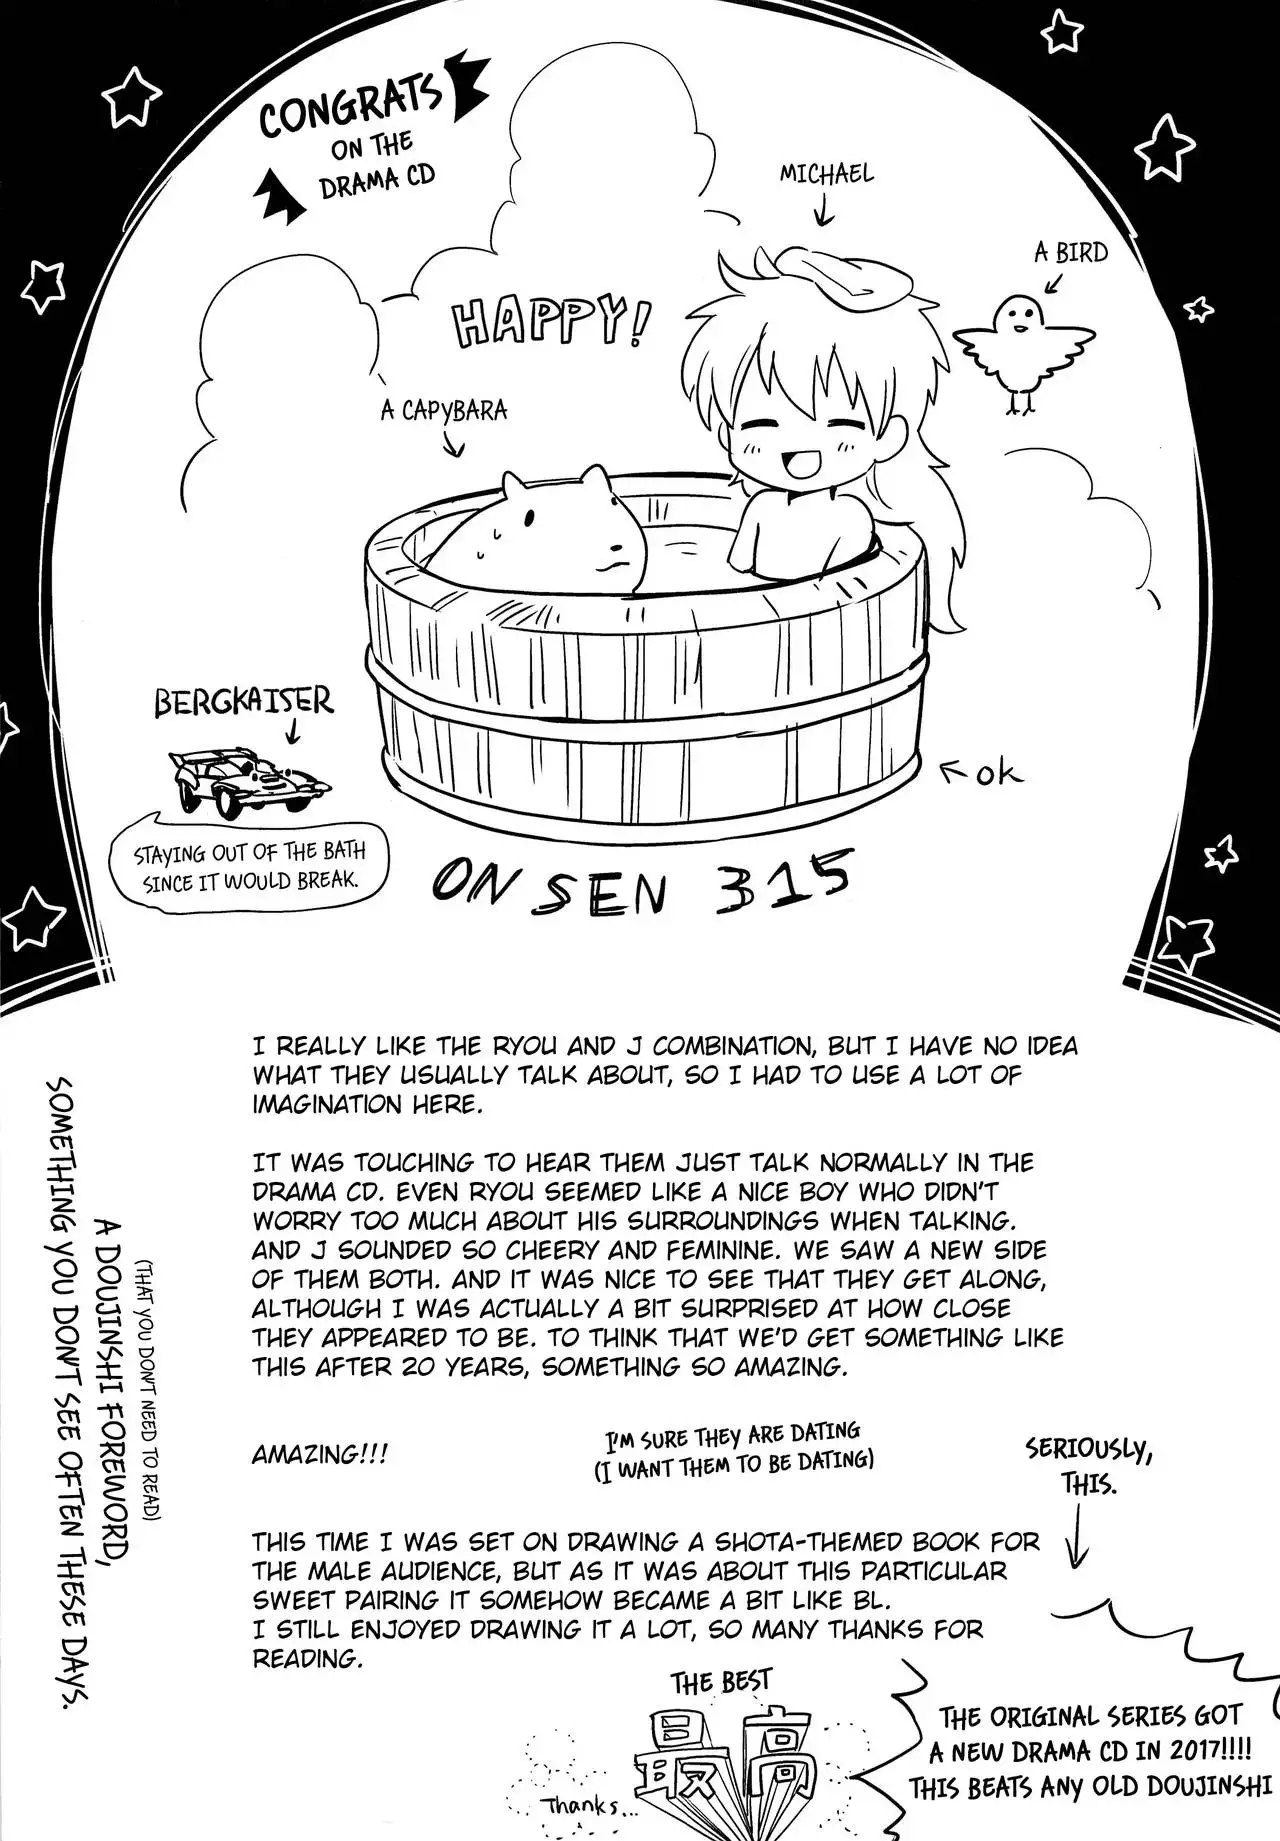 CONGRATS
ON THE
DRAMA CD
MICHAEL
A BIRD
HAPPY!
A CAPYBARA
BERGKAISER
← OK
STAYING OUT OF THE BATH
SINCE IT WOULD BREAK.
ONSEN 315
I REALLY LIKE THE RYOU AND J COMBINATION, BUT I HAVE NO IDEA
WHAT THEY USUALLY TALK ABOUT, SO I HAD TO USE A LOT OF
IMAGINATION HERE.
IT WAS TOUCHING TO HEAR THEM JUST TALK NORMALLY IN THE
DRAMA CD. EVEN RYOU SEEMED LIKE A NICE BOY WHO DIDN'T
WORRY TOO MUCH ABOUT HIS SURROUNDINGS WHEN TALKING.
AND J SOUNDED SO CHEERY AND FEMININE. WE SAW A NEW SIDE
OF THEM BOTH. AND IT WAS NICE TO SEE THAT THEY GET ALONG,
ALTHOUGH I WAS ACTUALLY A BIT SURPRISED AT HOW CLOSE
THEY APPEARED TO BE. TO THINK THAT WE'D GET SOMETHING LIKE
THIS AFTER 20 YEARS, SOMETHING SO AMAZING.
(THAT YOU DON'T NEED TO READ)
A DOUJINSHI FOREWORD,
SOMETHING YOU DON'T SEE OFTEN THESE DAYS.
AMAZING!!!
I'M SURE THEY ARE DATING
(I WANT THEM TO BE DATING)
SERIOUSLY,
THIS.
THIS TIME I WAS SET ON DRAWING A SHOTA-THEMED BOOK FOR
THE MALE AUDIENCE, BUT AS IT WAS ABOUT THIS PARTICULAR
SWEET PAIRING IT SOMEHOW BECAME A BIT LIKE BL.
I STILL ENJOYED DRAWING IT A LOT, SO MANY THANKS FOR
READING.
THE BEST
最高
Thanks...
THE ORIGINAL SERIES GOT
A NEW DRAMA CD IN 2017!!!!
THIS BEATS ANY OLD DOUJINSHI